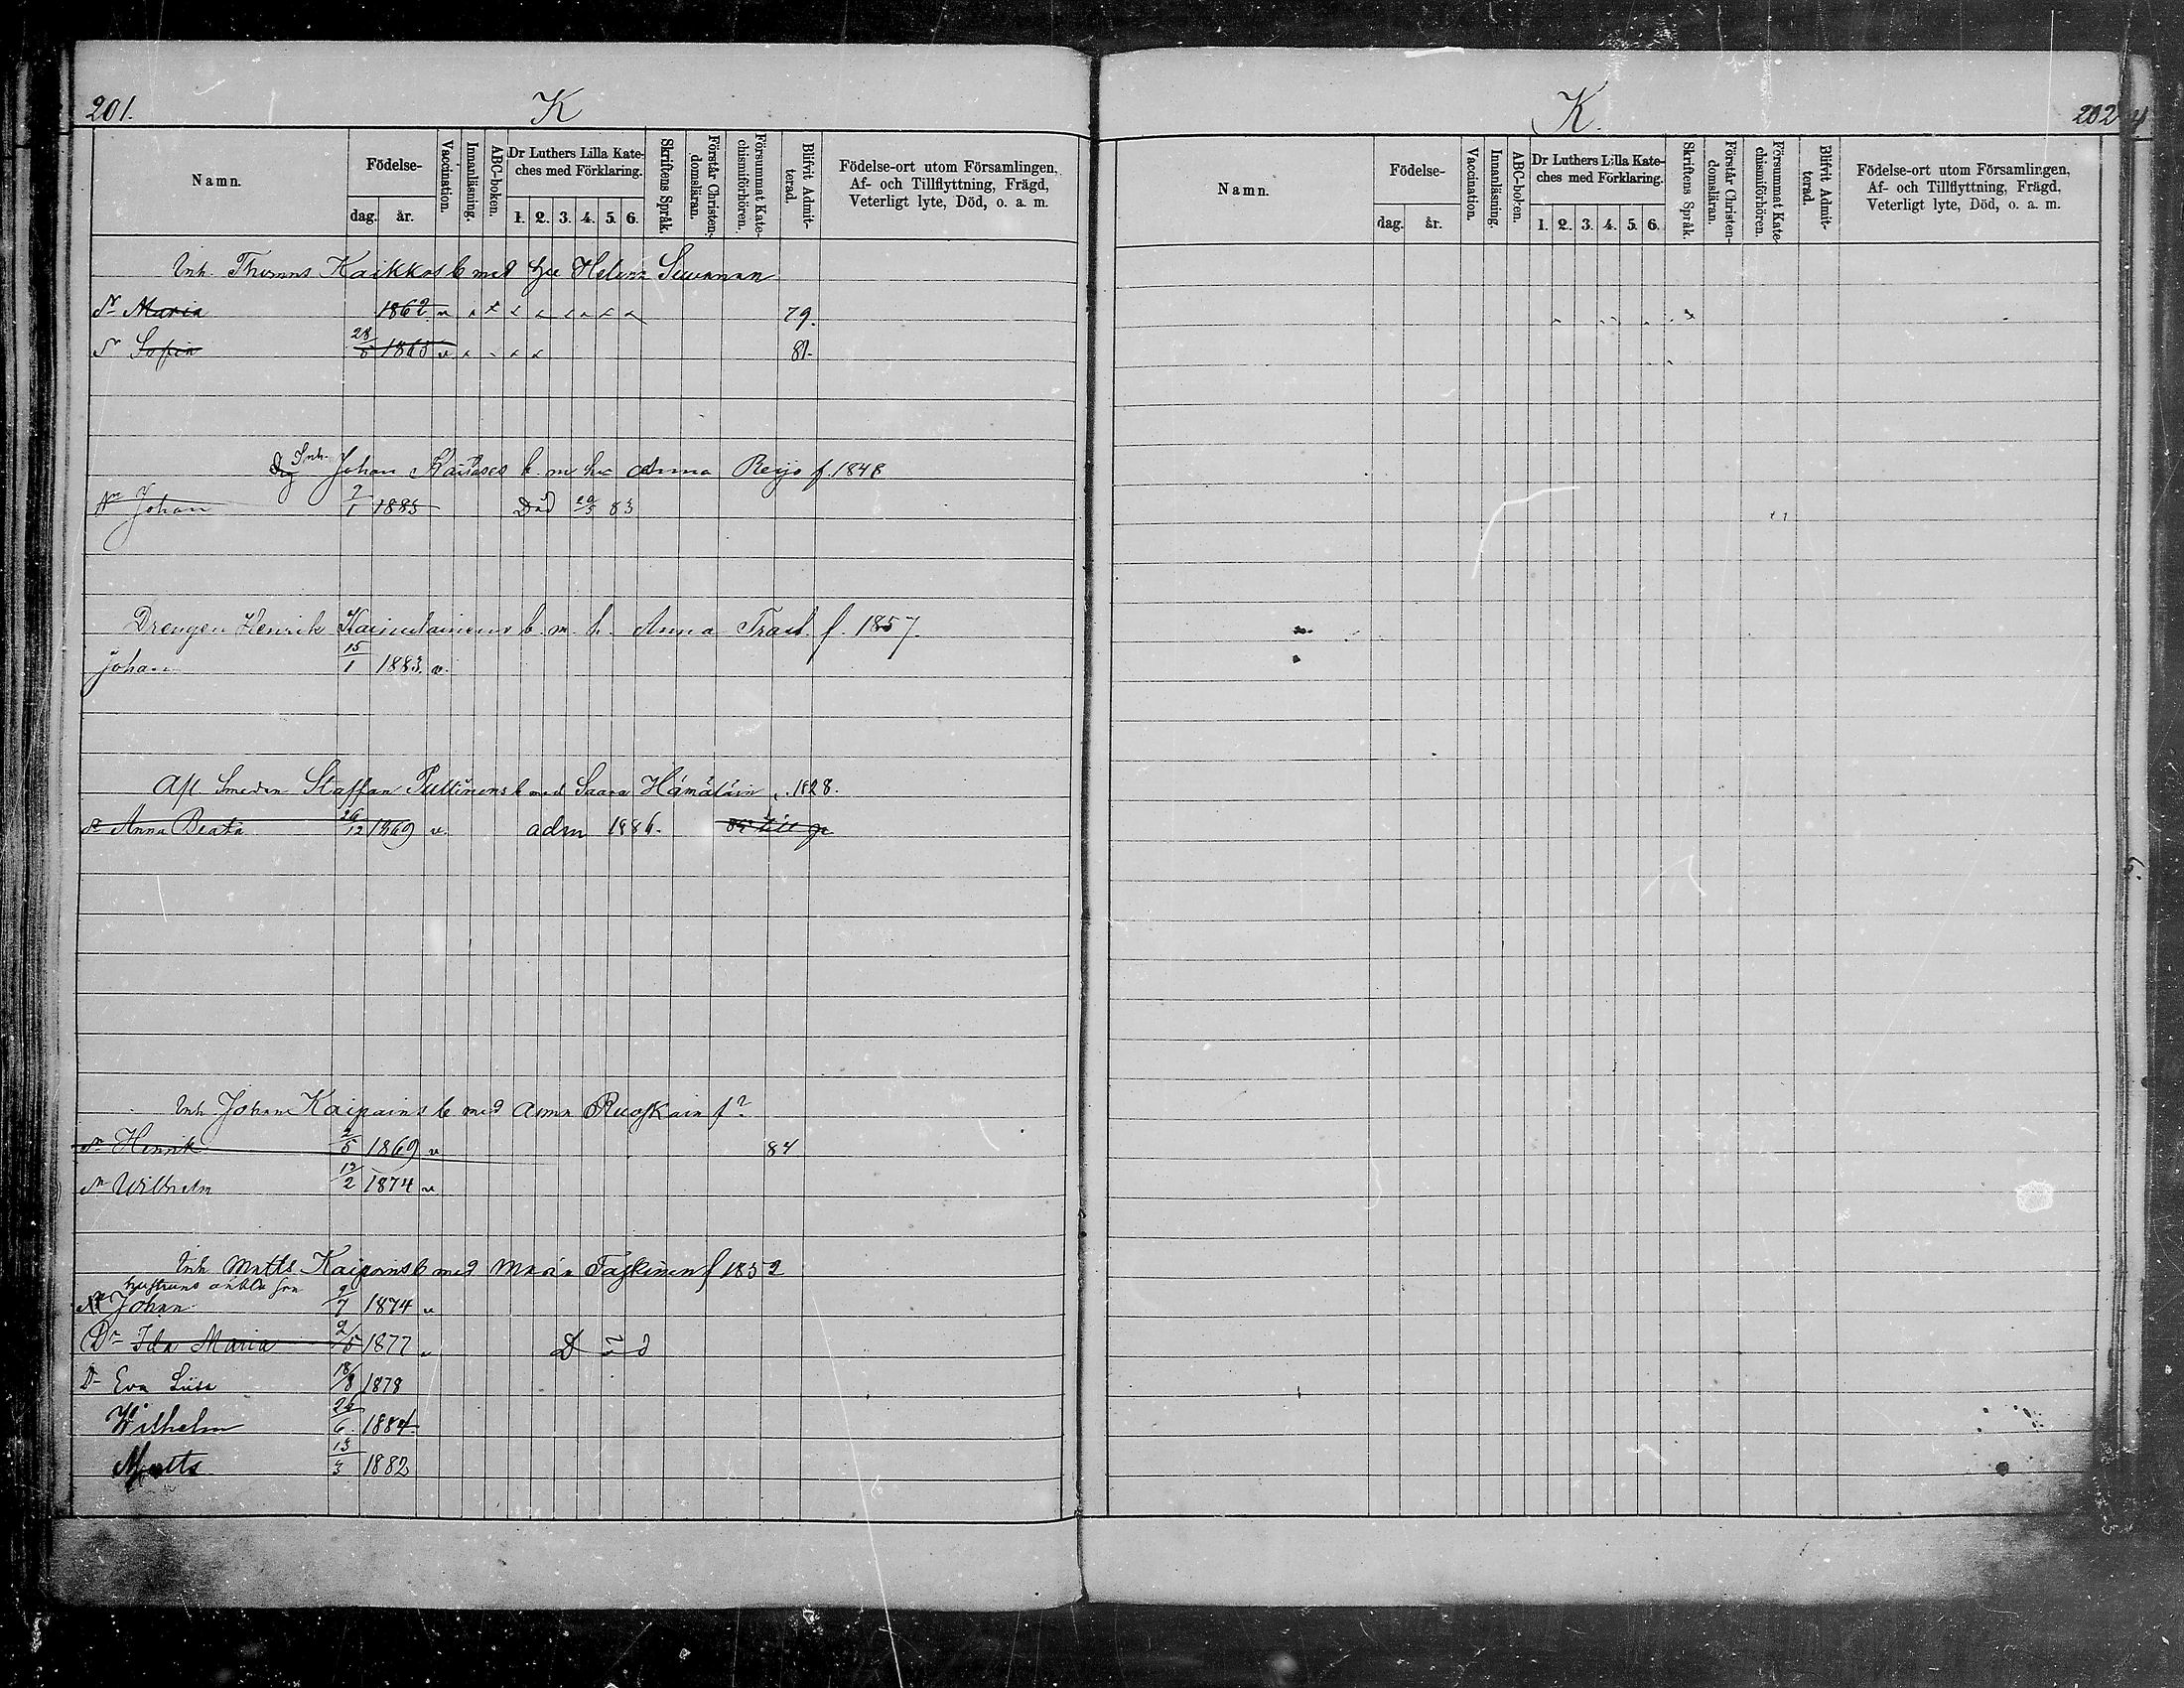 201. K
Namn. Födelse- dag. år. Vaccination. Innanläsning. ABC-boken. Dr Luthers Lilla Kateches med Förklaring. 1. 2. 3. 4. 5. 6. Skriftens Språk. Förstår Christendomsläran. Försummat Katechismiförhören. Blifvit Admitterad. Födelse-ort utom Församlingen, Af- och Tillflyttning, Frägd, Veterligt lyte, Död, o. a. m.
Inh. Thomas Kaikkos b med hu Helena
Maria 1862 v x x x x x x x x 79.
Sofia 28/5 1865 v x x x x 81.
Inh. Johan b. m. hu Anna Reijo f. 1848
Johan 7/1 1883 Död 20/3 83
Drengen Henrik Kainulainens b. m. h. Anna Trast f. 1857.
Johan 15/1 1883. v.
Afl. Smeden Staffan Pullinens b med Saara Hämäläin f. 1828.
Anna Beata 26/12 1869 v. adm 1886.
Inh. Johan Kaipains b med Anna Ruoskain f?
Henrik 2/5 1869 v 84
Wilhelm 12/2 1874 v
Inh Matts Kaipains b med Maria Taskinen f 1852
hustruns oäkta son
Johan 9/7 1874 v
Dr Ida Maria 2/5 1877 v Död
Dr Eva Liisa 18/8 1878
Wilhelm 24/6 1884
Matts 13/3 1882
K. 202
Namn. Födelse- dag. år. Vaccination. Innanläsning. ABC-boken. Dr Luthers Lilla Kateches med Förklaring. 1. 2. 3. 4. 5. 6. Skriftens Språk. Förstår Christendomsläran. Försummat Katechismiförhören. Blifvit Admitterad. Födelse-ort utom Församlingen, Af- och Tillflyttning, Frägd, Veterligt lyte, Död, o. a. m.